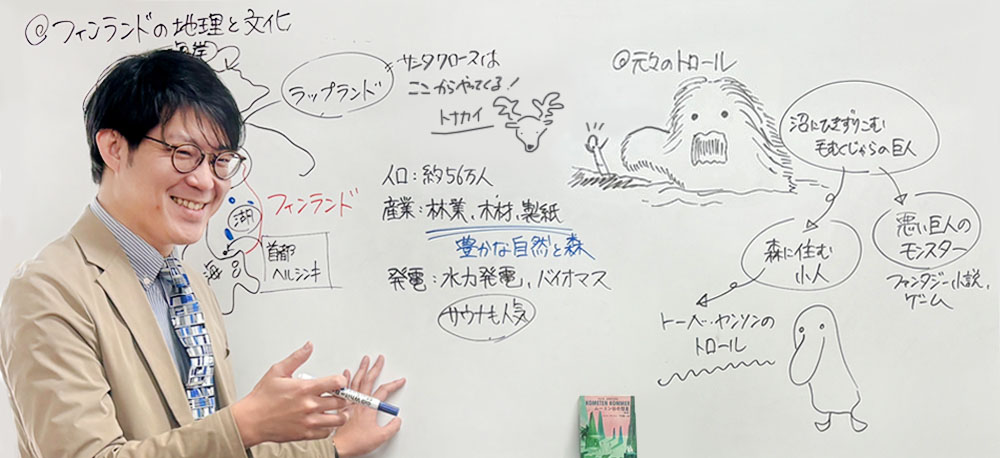 @フィンランドの地理と文化
ラップランド
サンタクロースは
ここからやってくる!
トナカイ
フィンランド
湖
首都
ヘルシンキ
海
人口:約56万人
産業:林業、木材、製紙
豊かな自然と森
発電:水力発電、バイオマス
サウナも人気
@元々のトロール
沼にひきずりこむ
毛むくじゃらの巨人
森に住む
小人
悪い巨人の
モンスター
ファンタジー小説、
ゲーム
トーベ・ヤンソンの
トロール
KOMETEN KOMMER